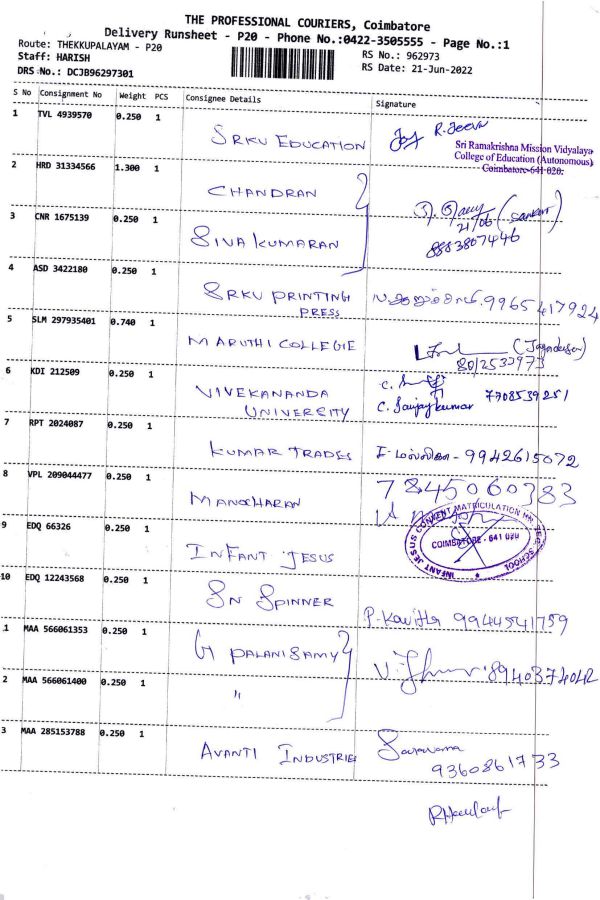 THE PROFESSIONAL COURIERS, Coimbatore
Delivery Runsheet - P20 - Phone No.:0422-3505555 - Page No.:1
Route: THEKKUPALAYAM - P20
RS No.: 962973
Staff: HARISH
RS Date: 21-Jun-2022
DRS No.: DCJB96297301
S No Consignment No Weight PCS Consignee Details Signature
1 TVL 4939570 0.250 1 SRKV EDUCATION R.Jeeva
Sri Ramakrishna Mission Vidyalaya
College of Education (Autonomous)
Coimbatore-641 020.
2 HRD 31334566 1.300 1 CHANDRAN
21/06 (Sankar)
3 CNR 1675139 0.250 1 SIVA KUMARAN 8883807446
4 ASD 3422180 0.250 1 SRKV PRINTING PRESS 9965417924
5 SLM 297935401 0.740 1 MARUTHI COLLEGE
8012533973
6 KDI 212509 0.250 1 VIVEKANANDA UNIVERSITY C. Sanjaykumar 7708539251
7 RPT 2024087 0.250 1 KUMAR TRADES 9942615072
8 VPL 209044477 0.250 1 MANOCHARAN 7845060383
9 EDQ 66326 0.250 1 INFANT JESUS
INFANT JESUS CONVENT MATRICULATION HR. SEC. SCHOOL
COIMBATORE - 641 020
10 EDQ 12243568 0.250 1 SN SPINNER P. Kavitha 9944541759
1 MAA 566061353 0.250 1 G PALANISAMY 8940374042
2 MAA 566061400 0.250 1 "
3 MAA 285153788 0.250 1 AVANTI INDUSTRIES Saravana
9360861733